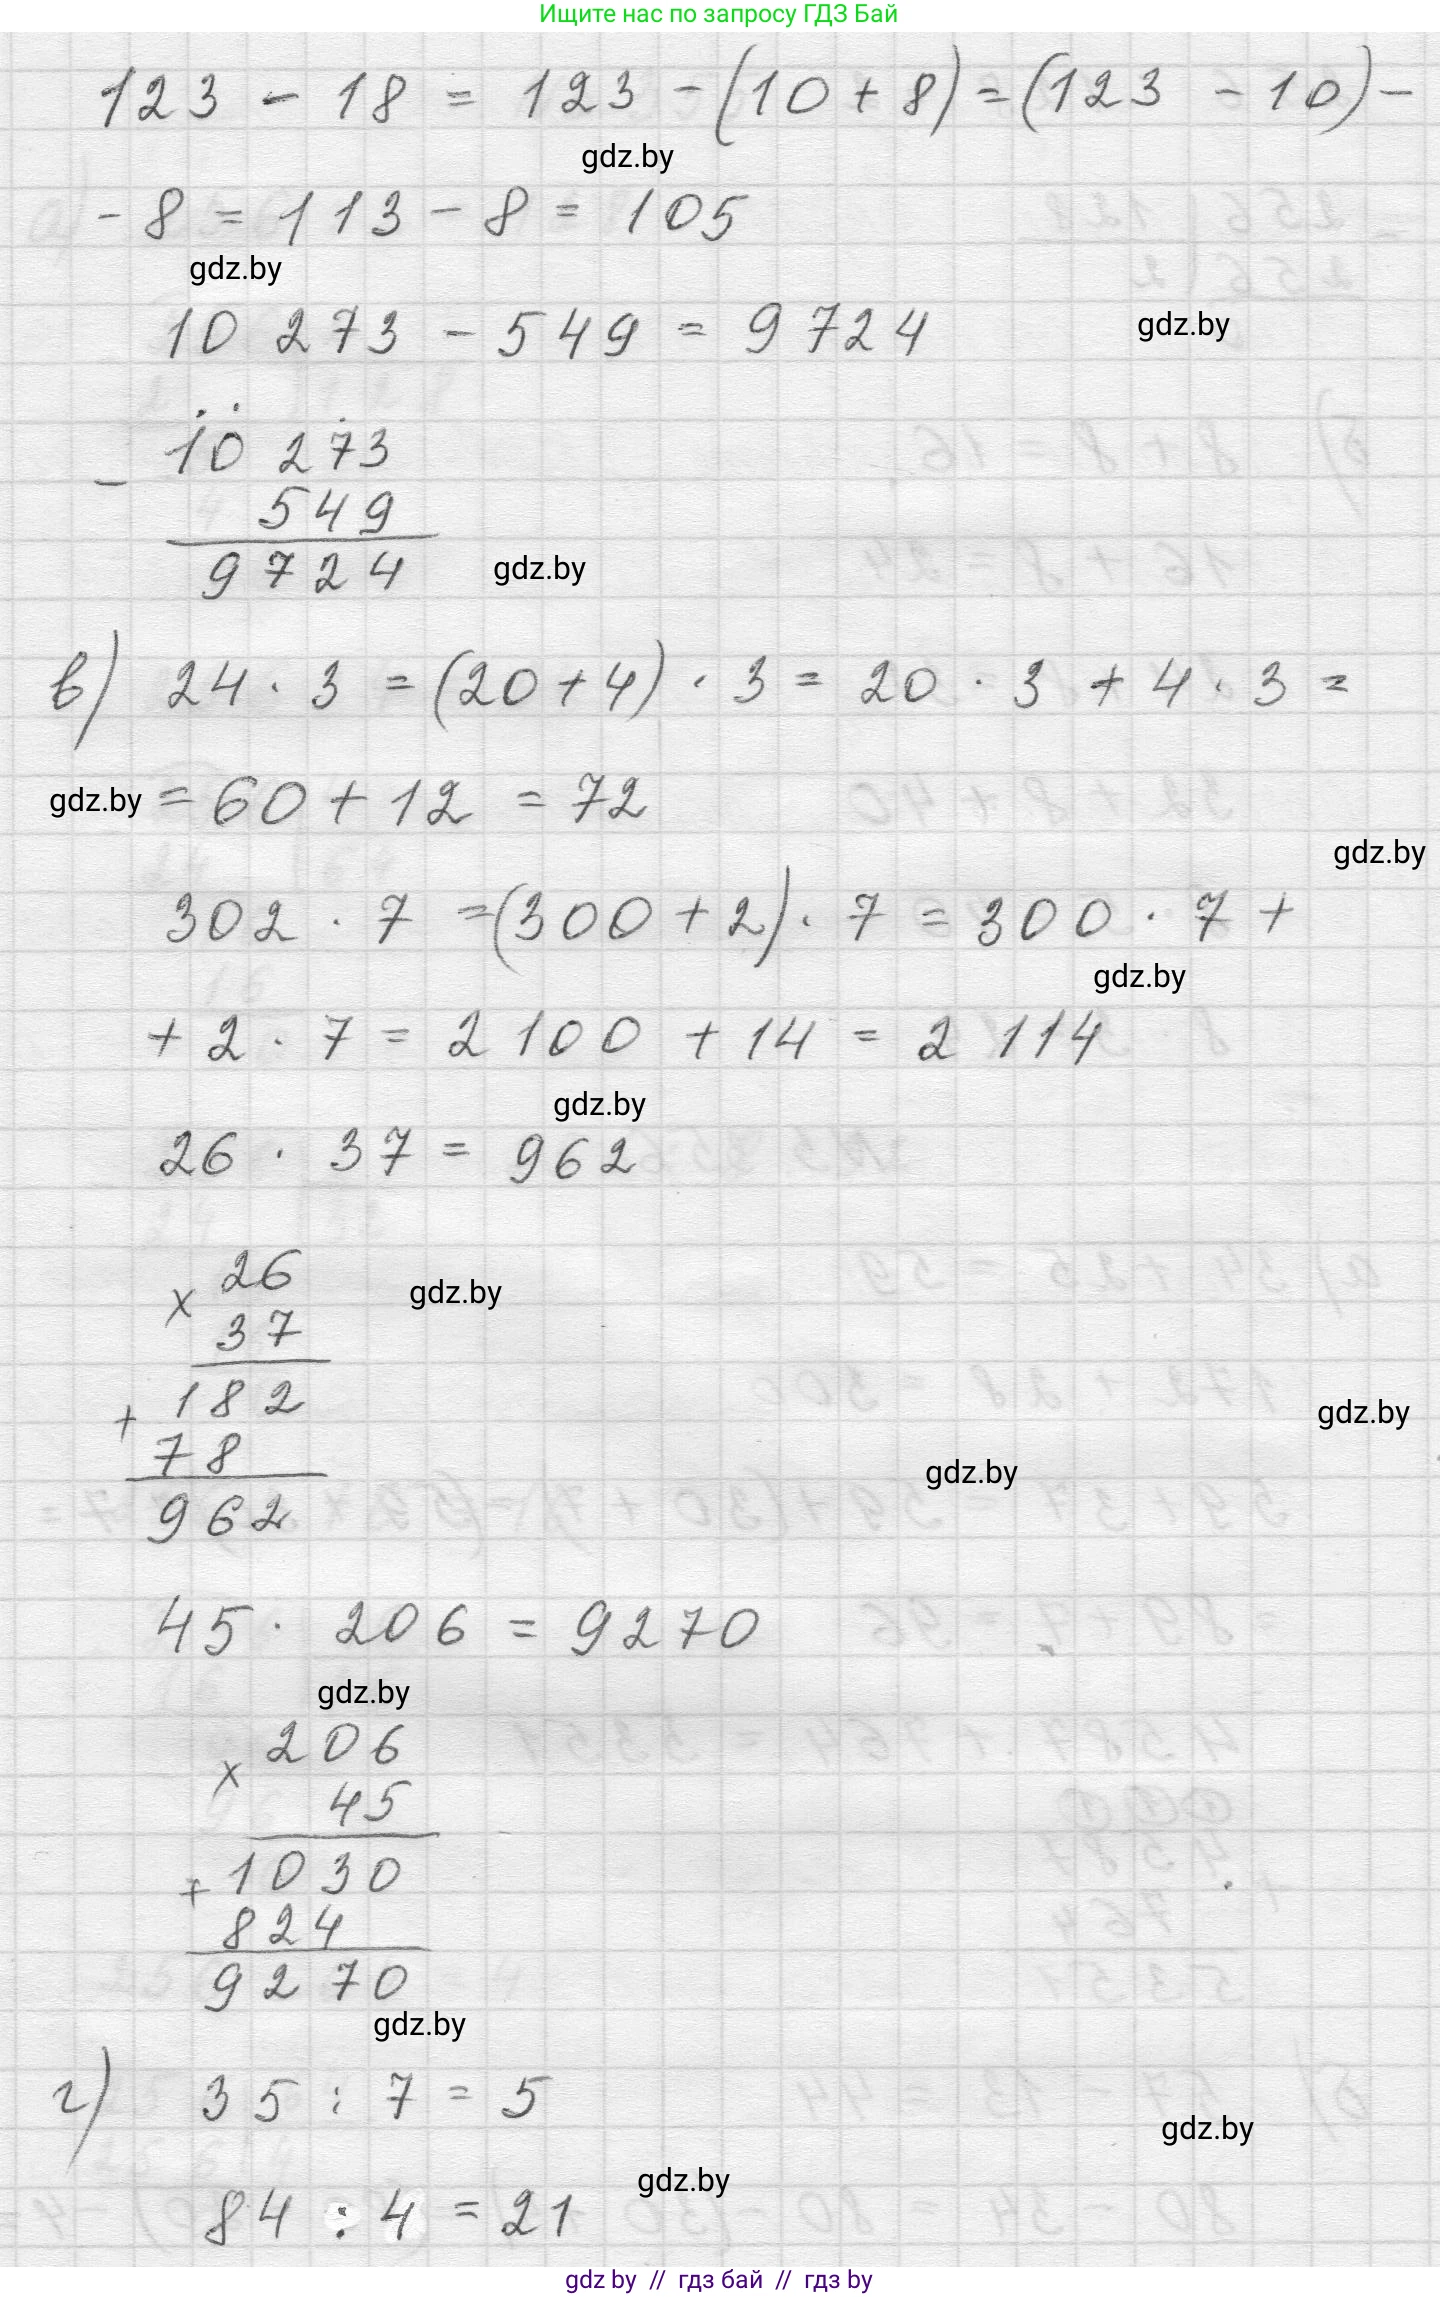 Ищите нас по запросу ГДЗ Бай
123 - 18 = 123 - (10 + 8) = (123 - 10) -
gdz.by
- 8 = 113 - 8 = 105
gdz.by
10 273 - 549 = 9724
gdz.by
10 273
-
549
9724
gdz.by
в) 24 · 3 = (20 + 4) · 3 = 20 · 3 + 4 · 3 =
gdz.by
= 60 + 12 = 72
gdz.by
302 · 7 = (300 + 2) · 7 = 300 · 7 +
gdz.by
+ 2 · 7 = 2 100 + 14 = 2 114
gdz.by
26 · 37 = 962
26
x
gdz.by
37
+ 182
gdz.by
78
gdz.by
962
45 · 206 = 9270
gdz.by
206
x
45
+ 1030
824
9270
gdz.by
г) 35 : 7 = 5
gdz.by
84 : 4 = 21
gdz.by
gdz by // гдз бай // гдз by